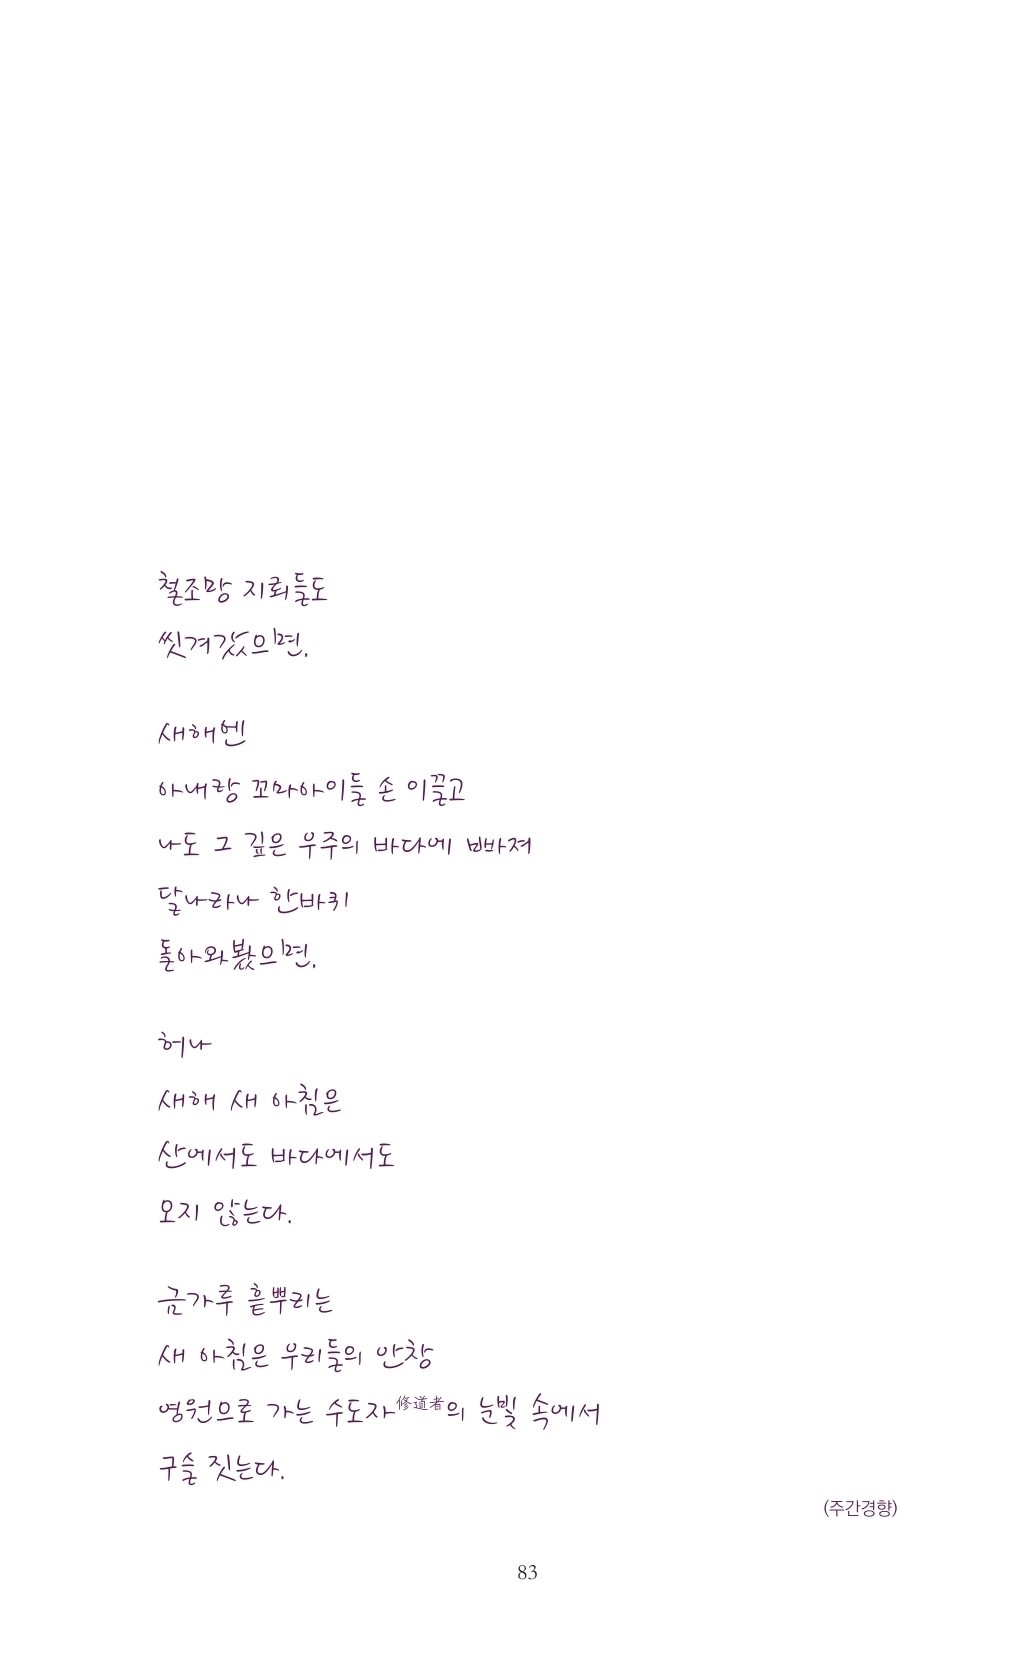 철조망 지뢰들도
씻겨갔으면.
새해엔
아내랑 꼬마아이들 손 이끌고
나도 그 깊은 우주의 바다에 빠져
달나라나 한바퀴
돌아와봤으면.
허나
새해 새 아침은
산에서도 바다에서도
오지 않는다.
금가루 흩뿌리는
새 아침은 우리들의 안창
영원으로 가는 수도자修道者의 눈빛 속에서
구슬 짓는다.
(주간경향)
83